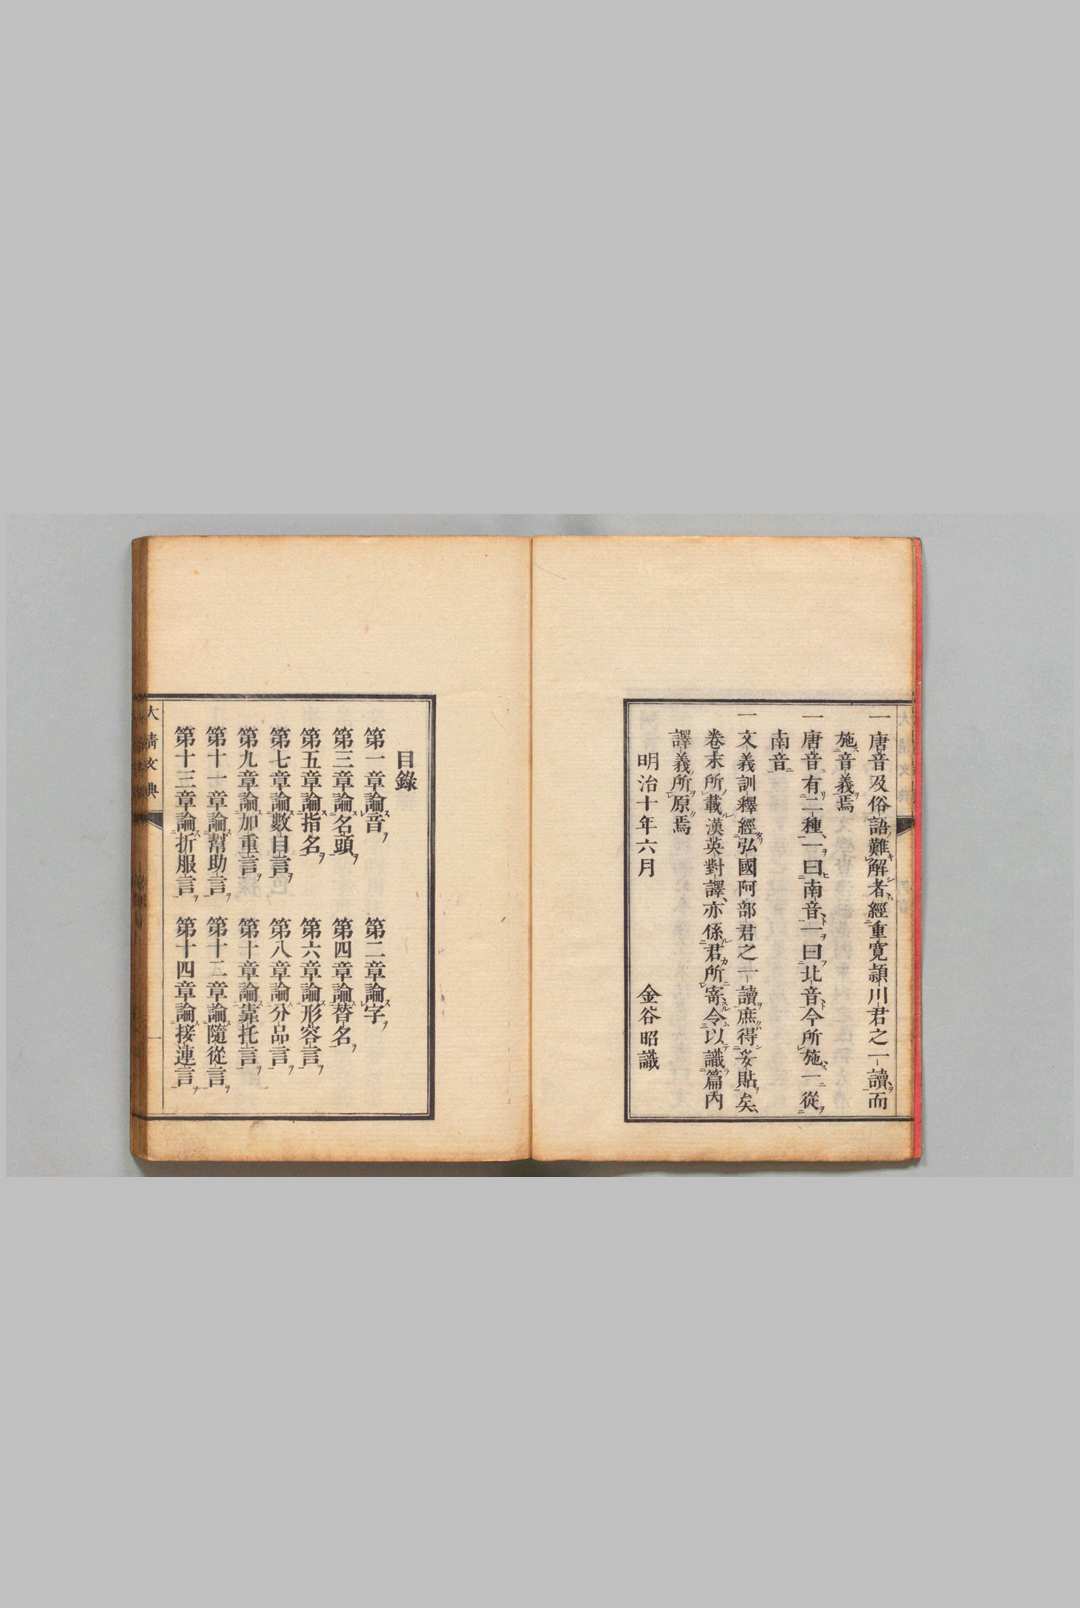 一唐音及俗語難解者經重寬頴川君之一讀而
施音義焉
一唐音有二種一曰南音一曰北音今所施一從
南音
一文義訓釋經弘國阿部君之一讀庶得妥貼矣
卷末所載漢英對譯亦係君所寄今以識篇內
譯義所原焉
明治十年六月 金谷昭識
目錄
第一章論音 第二章論字
第三章論名頭 第四章論替名
第五章論指名 第六章論形容言
第七章論數目言 第八章論分品言
第九章論加重言 第十章論靠托言
第十一章論幫助言 第十二章論隨從言
第十三章論折服言 第十四章論接連言
大清文典 一